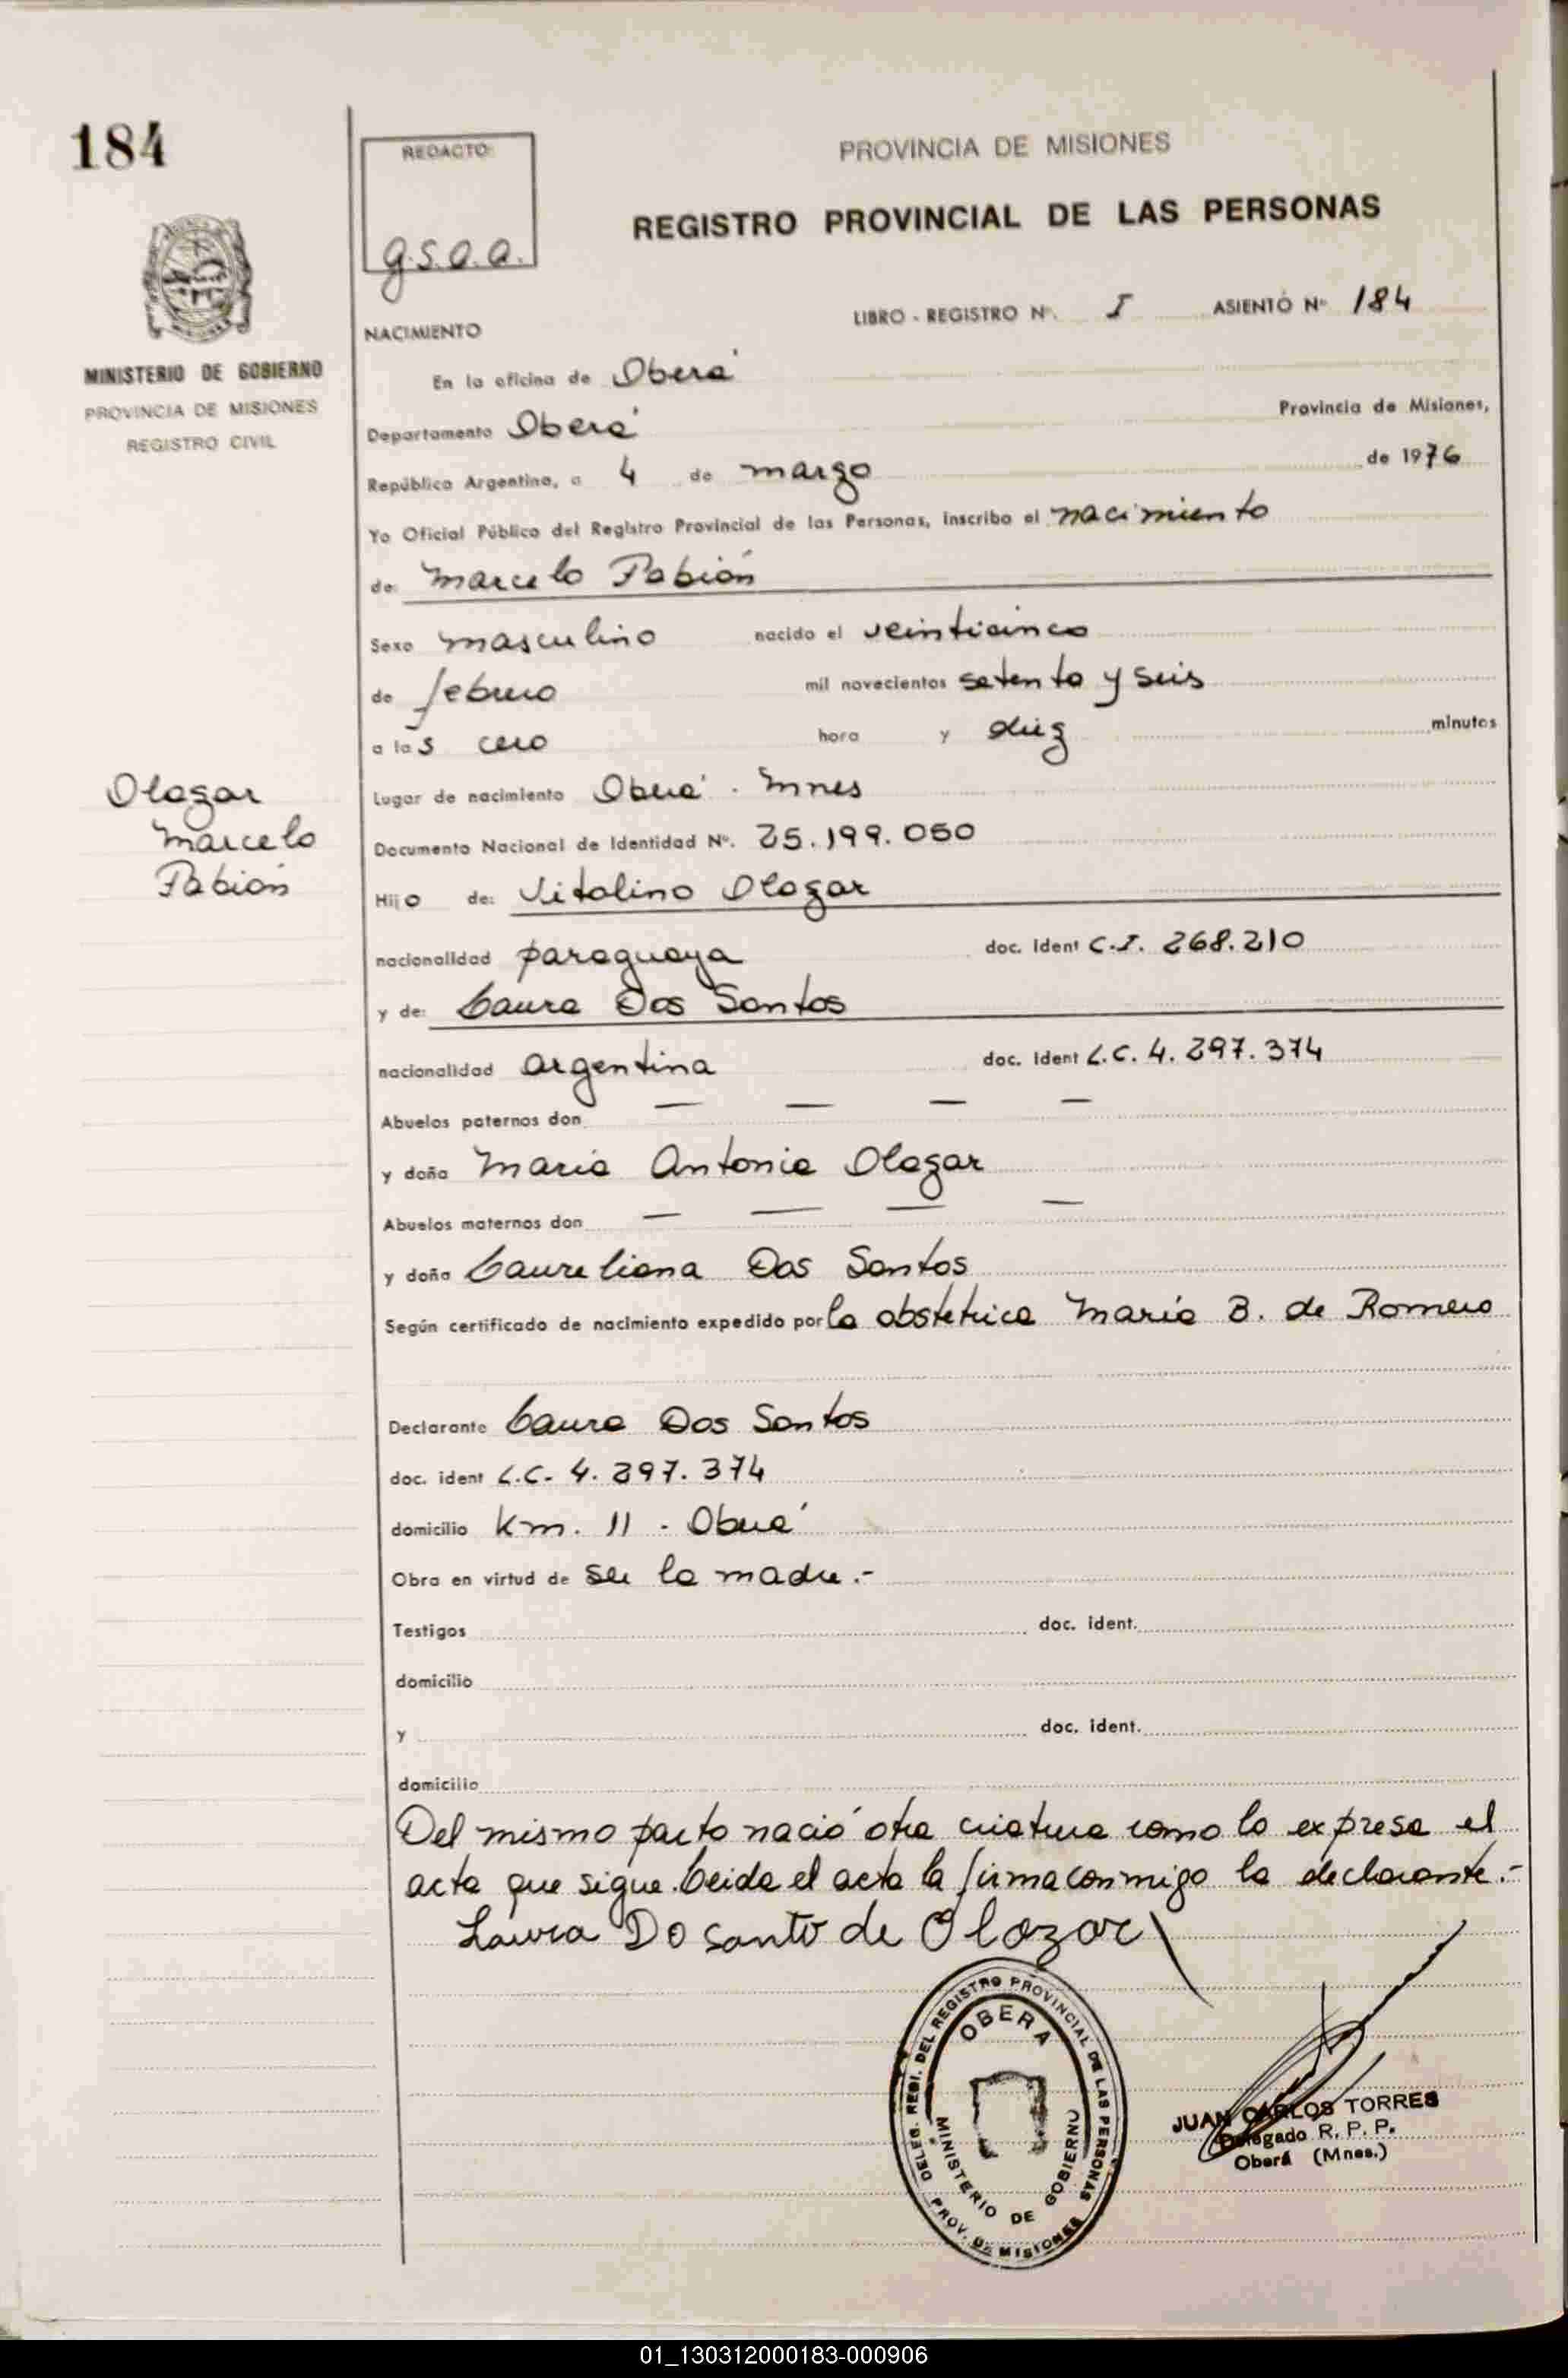 184
REDACTO:
g.s.a.a.
PROVINCIA DE MISIONES
REGISTRO PROVINCIAL DE LAS PERSONAS
LIBRO - REGISTRO Nº. I ASIENTO Nº 184
NACIMIENTO
MINISTERIO DE GOBIERNO
PROVINCIA DE MISIONES
REGISTRO CIVIL
En la oficina de Oberá
Departamento Oberá Provincia de Misiones,
República Argentina, a 4 de marzo de 1976
Yo Oficial Público del Registro Provincial de las Personas, inscribo el nacimiento
de: Marcelo Fabián
Sexo masculino nacido el veinticinco
de febrero mil novecientos setenta y seis
a las cero hora y diez minutos
Olazar
Marcelo
Fabián
Lugar de nacimiento Oberá - Mnes
Documento Nacional de Identidad Nº. 25.199.050
Hijo de: Vitalino Olazar
nacionalidad paraguaya doc. ident C.I. 268.210
y de: Laura Dos Santos
nacionalidad argentina doc. ident L.C. 4.297.374
Abuelos paternos don — — — —
y doña Maria Antonia Olazar
Abuelos maternos don — — — —
y doña Laureliana Dos Santos
Según certificado de nacimiento expedido por la obstetrica María B. de Romero
Declarante Laura Dos Santos
doc. ident L.C. 4.297.374
domicilio Km. 11 - Oberá
Obra en virtud de ser la madre.-
Testigos doc. ident.
domicilio
y doc. ident.
domicilio
Del mismo parto nació otra criatura como lo expresa el
acta que sigue. Leida el acta la firma conmigo la declarante.-
Laura Do Santo de Olozar
DELEG. REGI. DEL REGISTRO PROVINCIAL DE LAS PERSONAS
OBERA
MINISTERIO DE GOBIERNO
PROV. DE MISIONES
JUAN CARLOS TORRES
Delegado R. P. P.
Oberá (Mnes.)
01_130312000183-000906